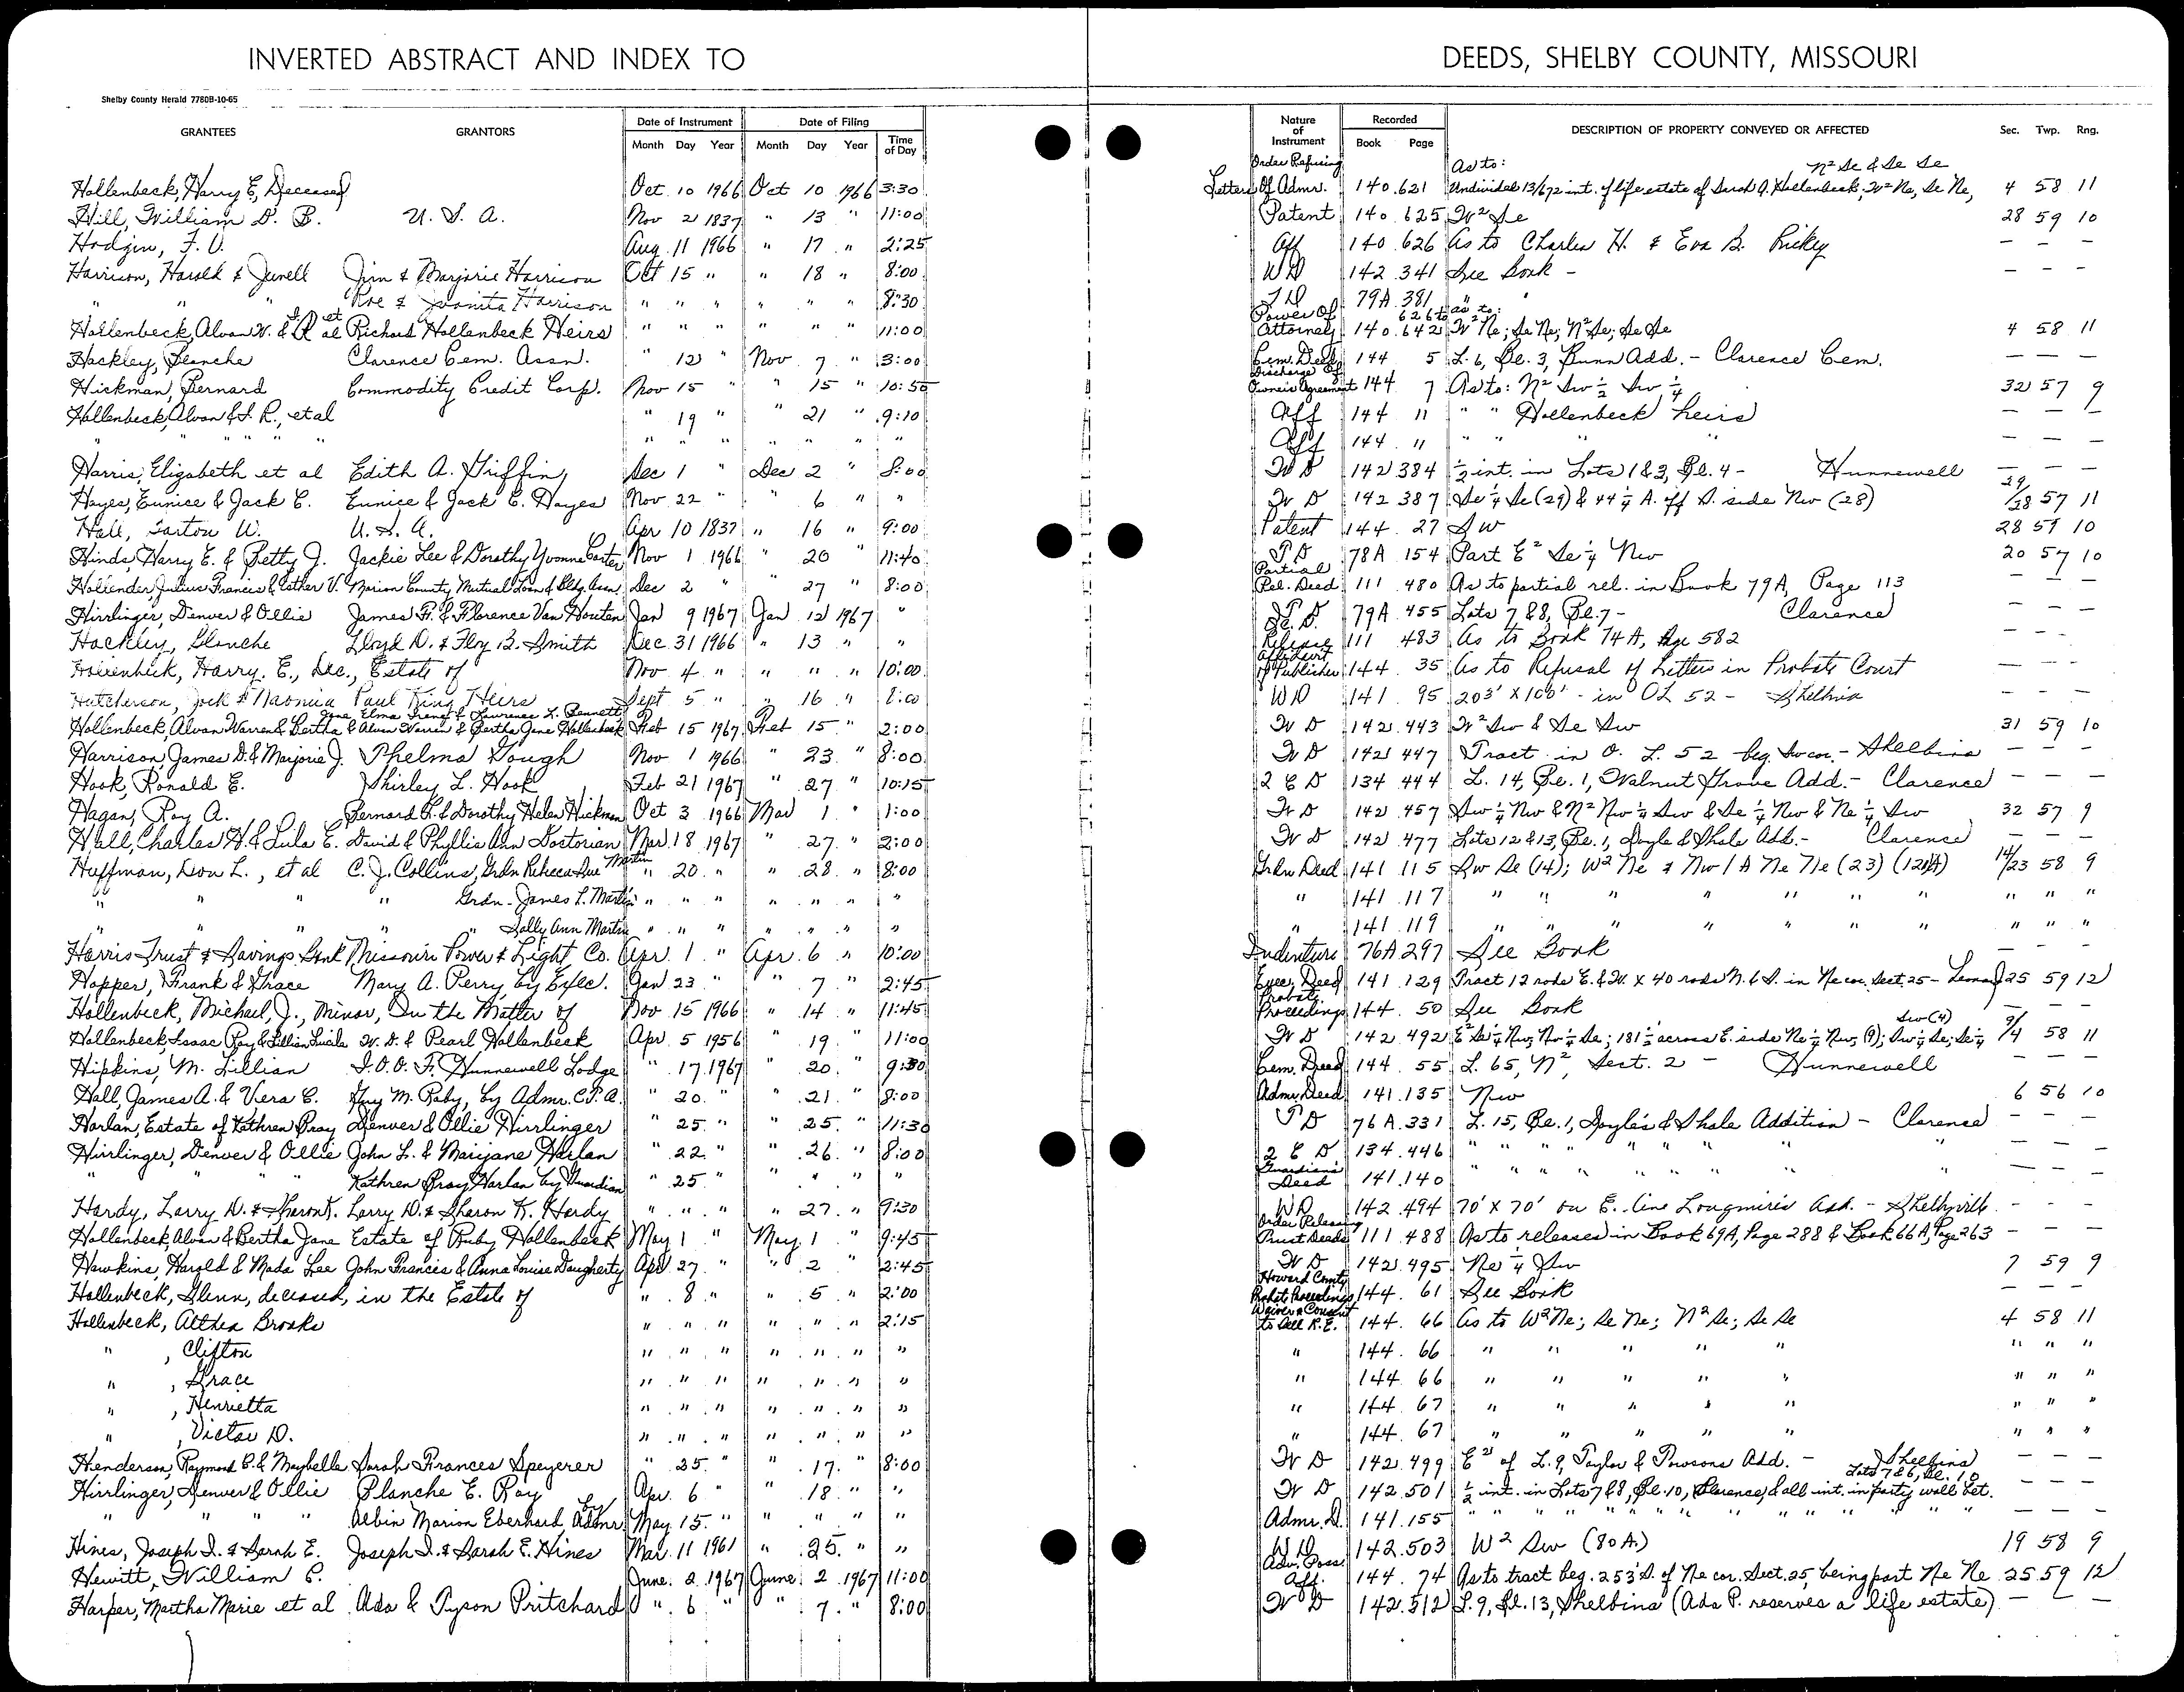 INVERTED ABSTRACT AND INDEX TO DEEDS, SHELBY COUNTY, MISSOURI
Shelby County Herald 7780B-10-65
GRANTEES GRANTORS Date of Instrument Date of Filing Nature of Instrument Recorded DESCRIPTION OF PROPERTY CONVEYED OR AFFECTED Sec. Twp. Rng.
Month Day Year Month Day Year Time of Day Book Page
Order Refusing As to: N² Se & Se Se
Hollenbeck, Harry E, Deceased Oct 10 1966 Oct 10 1966 3:30 Letters Of Admr. 140 621 Undivided 13/672 int. of life estate of Sarah A. Hollenbeck, W² Ne, Se Ne, 4 58 11
Hill, William D. B. U. S. A. Nov 2 1837 " 13 " 11:00 Patent 140 625 W² Se 28 59 10
Hodgin, F. V. Aug 11 1966 " 17 " 2:25 Aff 140 626 As to Charles H. & Eva B. Rickey — — —
Harrison, Harold & Junell Jim & Marjorie Harrison Oct 15 " " 18 " 8:00 WD 142 341 See Book - — — —
" " Roe & Juanita Harrison " " " " " " 8:30 TD 79A 381 " "
Hollenbeck, Alvan W. & I. R et al Richard Hollenbeck Heirs " " " " " " 11:00 Power Of Attorney 140 626 to 642 as to: W² Ne; Se Ne; N² Se; Se Se 4 58 11
Hackley, Blanche Clarence Cem. Assn. " 12 " Nov 7 " 3:00 Cem. Deed 144 5 L. 6, Bl. 3, Bunn Add. - Clarence Cem. — — —
Hickman, Bernard Commodity Credit Corp. Nov 15 " " 15 " 10:50 Discharge Of Owner's Agreement 144 7 As to: N² Sw ½ Sw ¼ 32 57 9
Hollenbeck, Alvan & I. R., et al " 19 " " 21 " 9:10 Aff 144 11 " " Hollenbeck heirs — — —
" " " " " " " " " " " Aff 144 11 " " " " — — —
Harris, Elizabeth et al Edith A. Griffin Dec 1 " Dec 2 " 8:00 W D 142 384 ½ int. in Lots 1 & 2, Bl. 4 - Hunnewell — — —
Hayes, Eunice & Jack C. Eunice & Jack C. Hayes Nov 22 " " 6 " " W D 142 387 Se ¼ Se (29) & 44 ½ A. off S. side Nw (28) 29/28 57 11
Hall, Tarton W. U. S. A. Apr 10 1837 " 16 " 9:00 Patent 144 27 S W 28 57 10
Hinds, Harry E. & Betty J. Jackie Lee & Dorothy Yvonne Carter Nov 1 1966 " 20 11:40 T D 78A 154 Part E² Se ¼ Nw 20 57 10
Hollender, Julius Francis & Esther V. Marion County Mutual Loan & Bldg. Assn. Dec 2 " " 27 " 8:00 Partial Rel. Deed 111 480 As to partial rel. in Book 79A, Page 113 — — —
Hirrlinger, Denver & Ollie James F. & Florence Van Houten Jan 9 1967 Jan 12 1967 " T. D. 79A 455 Lots 7 & 8, Bl. 7 - Clarence — — —
Hackley, Blanche Lloyd D. & Floy B. Smith Dec 31 1966 " 13 " " Release 111 483 As to Book 74A, Page 582 — — —
Hollenbeck, Harry. E., Dec., Estate of Nov 4 " " " " 10:00 Affidavit of Publisher 144 35 As to Refusal of Letters in Probate Court — — —
Hutcherson, Jack & Naomia Paul King Heirs Sept 5 " " 16 " 8:00 WD 141 95 203' X 100' - in OL 52 - Shelbina
Hollenbeck, Alvan Warren & Bertha Jane, Elma Irene & Lawrence L. Bennett & Alvan Warren & Bertha Jane Hollenbeck Feb 15 1967 Feb 15 " 2:00 W D 142 443 W² Sw & Se Sw 31 59 10
Harrison, James D. & Marjorie J. Thelma Gough Nov 1 1966 " 23 " 8:00 W D 142 447 Tract in O. L. 52 beg. Sw cor. - Shelbina — — —
Hook, Ronald E. Shirley L. Hook Feb 21 1967 " 27 " 10:15 2 C D 134 444 L. 14, Bl. 1, Walnut Grove Add. - Clarence — — —
Hagan, Roy A. Bernard F. & Dorothy Helen Hickman Oct 3 1966 Mar 1 " 1:00 W D 142 457 Sw ¼ Nw & N² Nw ¼ Sw & Se ¼ Nw & Ne ¼ Sw 32 57 9
Hall, Charles H. & Lula E. David & Phyllis Ann Dostorian Mar 18 1967 " 27 " 2:00 W D 142 477 Lots 12 & 13, Bl. 1, Doyle & Shale Add. - Clarence — — —
Huffman, Don L., et al C. J. Collins, Grdn Rebecca Sue Martin " 20 " " 28 " 8:00 Grdn Deed 141 115 Sw Se (14); W² Ne & Nw 1 A Ne Ne (23) (121A) 14/23 58 9
" " " Grdn - James L. Martin " " " " " " " " 141 117 " " " " " " " " " "
" " " " Sally Ann Martin " " " " " " " " 141 119 " " " " " " " " " "
Harris Trust & Savings Bank Missouri Power & Light Co. Apr. 1 " Apr. 6 " 10:00 Indenture 76A 297 See Book — — —
Hopper, Frank & Grace Mary A. Perry, by Exec. Jan 23 " " 7 " 2:45 Exec. Deed 141 129 Tract 12 rods E. & W. x 40 rods N. & S. in Ne cor. Sect. 25 - Leonard 25 59 12
Hollenbeck, Michael, J., Minor, In the Matter of Nov 15 1966 " 14 " 11:45 Probate Proceedings 144 50 See Book — — —
Hollenbeck, Isaac Roy & Lillian Lucile W. D. & Pearl Hollenbeck Apr 5 1956 " 19 " 11:00 W D 142 492 E² Se ¼ Nw, Nw ¼ Se; 181 ½ across E. side Ne ¼ Nw, (9); Sw ¼ Se; Se ¼ Sw (4) 9/4 58 11
Hipkins, M. Lillian I. O. O. F. Hunnewell Lodge " 17 1967 " 20 " 9:30 Cem. Deed 144 55 L. 65, N², Sect. 2 - Hunnewell — — —
Hall, James A. & Vera C. Guy M. Raby, by Admr. C.T.A. " 20 " " 21 " 8:00 Admr. Deed 141 135 Nw 6 56 10
Harlan, Estate of Kathren Bray Denver & Ollie Hirrlinger " 25 " " 25 " 11:30 T D 76A 331 L. 15, Bl. 1, Doyle's & Shale Addition - Clarence — — —
Hirrlinger, Denver & Ollie John L. & Marijane Harlan " 22 " " 26 " 8:00 2 C D 134 446 " " " " " " " — — —
" " " Kathren Bray Harlan by Guardian " 25 " " " " Guardian's Deed 141 140 " " " " " " " — — —
Hardy, Larry D. & Sharon K. Larry D. & Sharon K. Hardy " " " " 27 " 9:30 WD 142 494 70' X 70' on E. line Longmire's Add. - Shelbyville - - -
Hollenbeck, Alvan & Bertha Jane Estate of Ruby Hollenbeck May 1 " May 1 " 9:45 Order Releasing Trust Deeds 111 488 As to released in Book 69A, Page 288 & Book 66A, Page 263 — — —
Hawkins, Harold & Mada Lee John Francis & Anna Louise Daugherty Apr 27 " " 2 " 2:45 W D 142 495 Ne ¼ Sw 7 59 9
Hollenbeck, Glenn, deceased, in the Estate of " 8 " " 5 " 2:00 Howard County Probate Proceedings 144 61 See Book — — —
Hollenbeck, Althea Brooks " " " " " " 2:15 Waiver & Consent to Sell R.E. 144 66 As to W² Ne; Se Ne; N² Se; Se Se 4 58 11
" , Clifton " " " " " " " " 144 66 " " " " " " " "
" , Grace " " " " " " " " 144 66 " " " " " " " "
" , Henrietta " " " " " " " " 144 67 " " " " " " " "
" , Victor D. " " " " " " " " 144 67 " " " " " " " "
Henderson, Raymond C. & Maybelle Sarah Frances Speyerer " 25 " " 17 " 8:00 W D 142 499 E² of L. 9, Taylor & Towsons Add. - Shelbina — — —
Hirrlinger, Denver & Ollie Blanche E. Ray Apr. 6 " " 18 " " W D 142 501 ½ int. in Lots 7 & 8, Bl. 10, Clarence, & all int. in party wall bet. Lots 7 & 6, Bl. 10 — — —
" " " " Albin Marion Eberhard, by Admr. May 15 " " " " " Admr. D. 141 155 " " " " " " " " " " — — —
Hines, Joseph I. & Sarah E. Joseph I. & Sarah E. Hines Mar. 11 1961 " 25 " " WD 142 503 W² Sw (80 A.) 19 58 9
Hewitt, William C. June 2 1967 June 2 1967 11:00 Adv. Poss. Aff. 144 74 As to tract beg. 253' S. of Ne cor. Sect. 25, being part Ne Ne 25 59 12
Harper, Martha Marie et al Ada & Tyson Pritchard " 6 " " 7 " 8:00 W D 142 512 L. 9, Bl. 13, Shelbina (Ada P. reserves a life estate) — — —